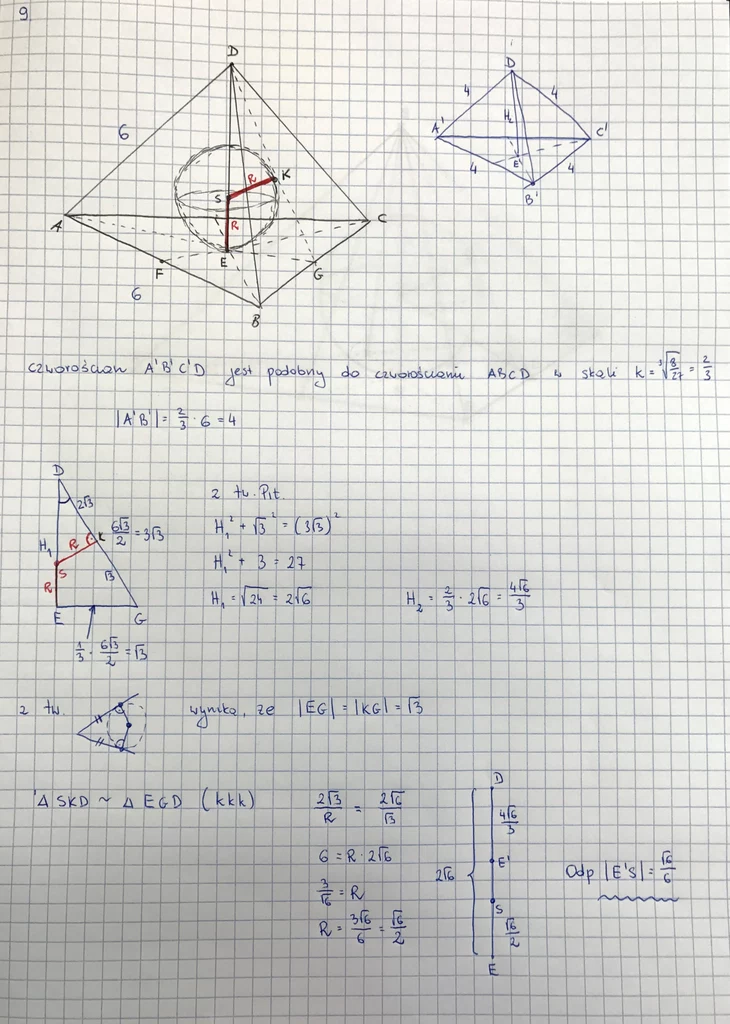 9
D
6
K
R
S
R
A
C
E
F
G
6
B
D
4
4
H₂
A'
C'
E'
4
4
B'
czworościan A'B'C'D jest podobny do czworościanu ABCD w skali k = ∛(8/27) = 2/3
|A'B'| = 2/3 · 6 = 4
D
2√3
H₁
R
K
6√3/2 = 3√3
S
R
√3
E
G
1/3 · 6√3/2 = √3
z tw. Pit.
H₁² + √3² = (3√3)²
H₁² + 3 = 27
H₁ = √24 = 2√6
H₂ = 2/3 · 2√6 = 4√6/3
z tw.
wynika, że |EG| = |KG| = √3
Δ SKD ~ Δ EGD (kkk)
2√3/R = 2√6/√3
6 = R · 2√6
3/√6 = R
R = 3√6/6 = √6/2
D
4√6/3
2√6
E'
S
√6/2
E
Odp |E'S| = √6/6